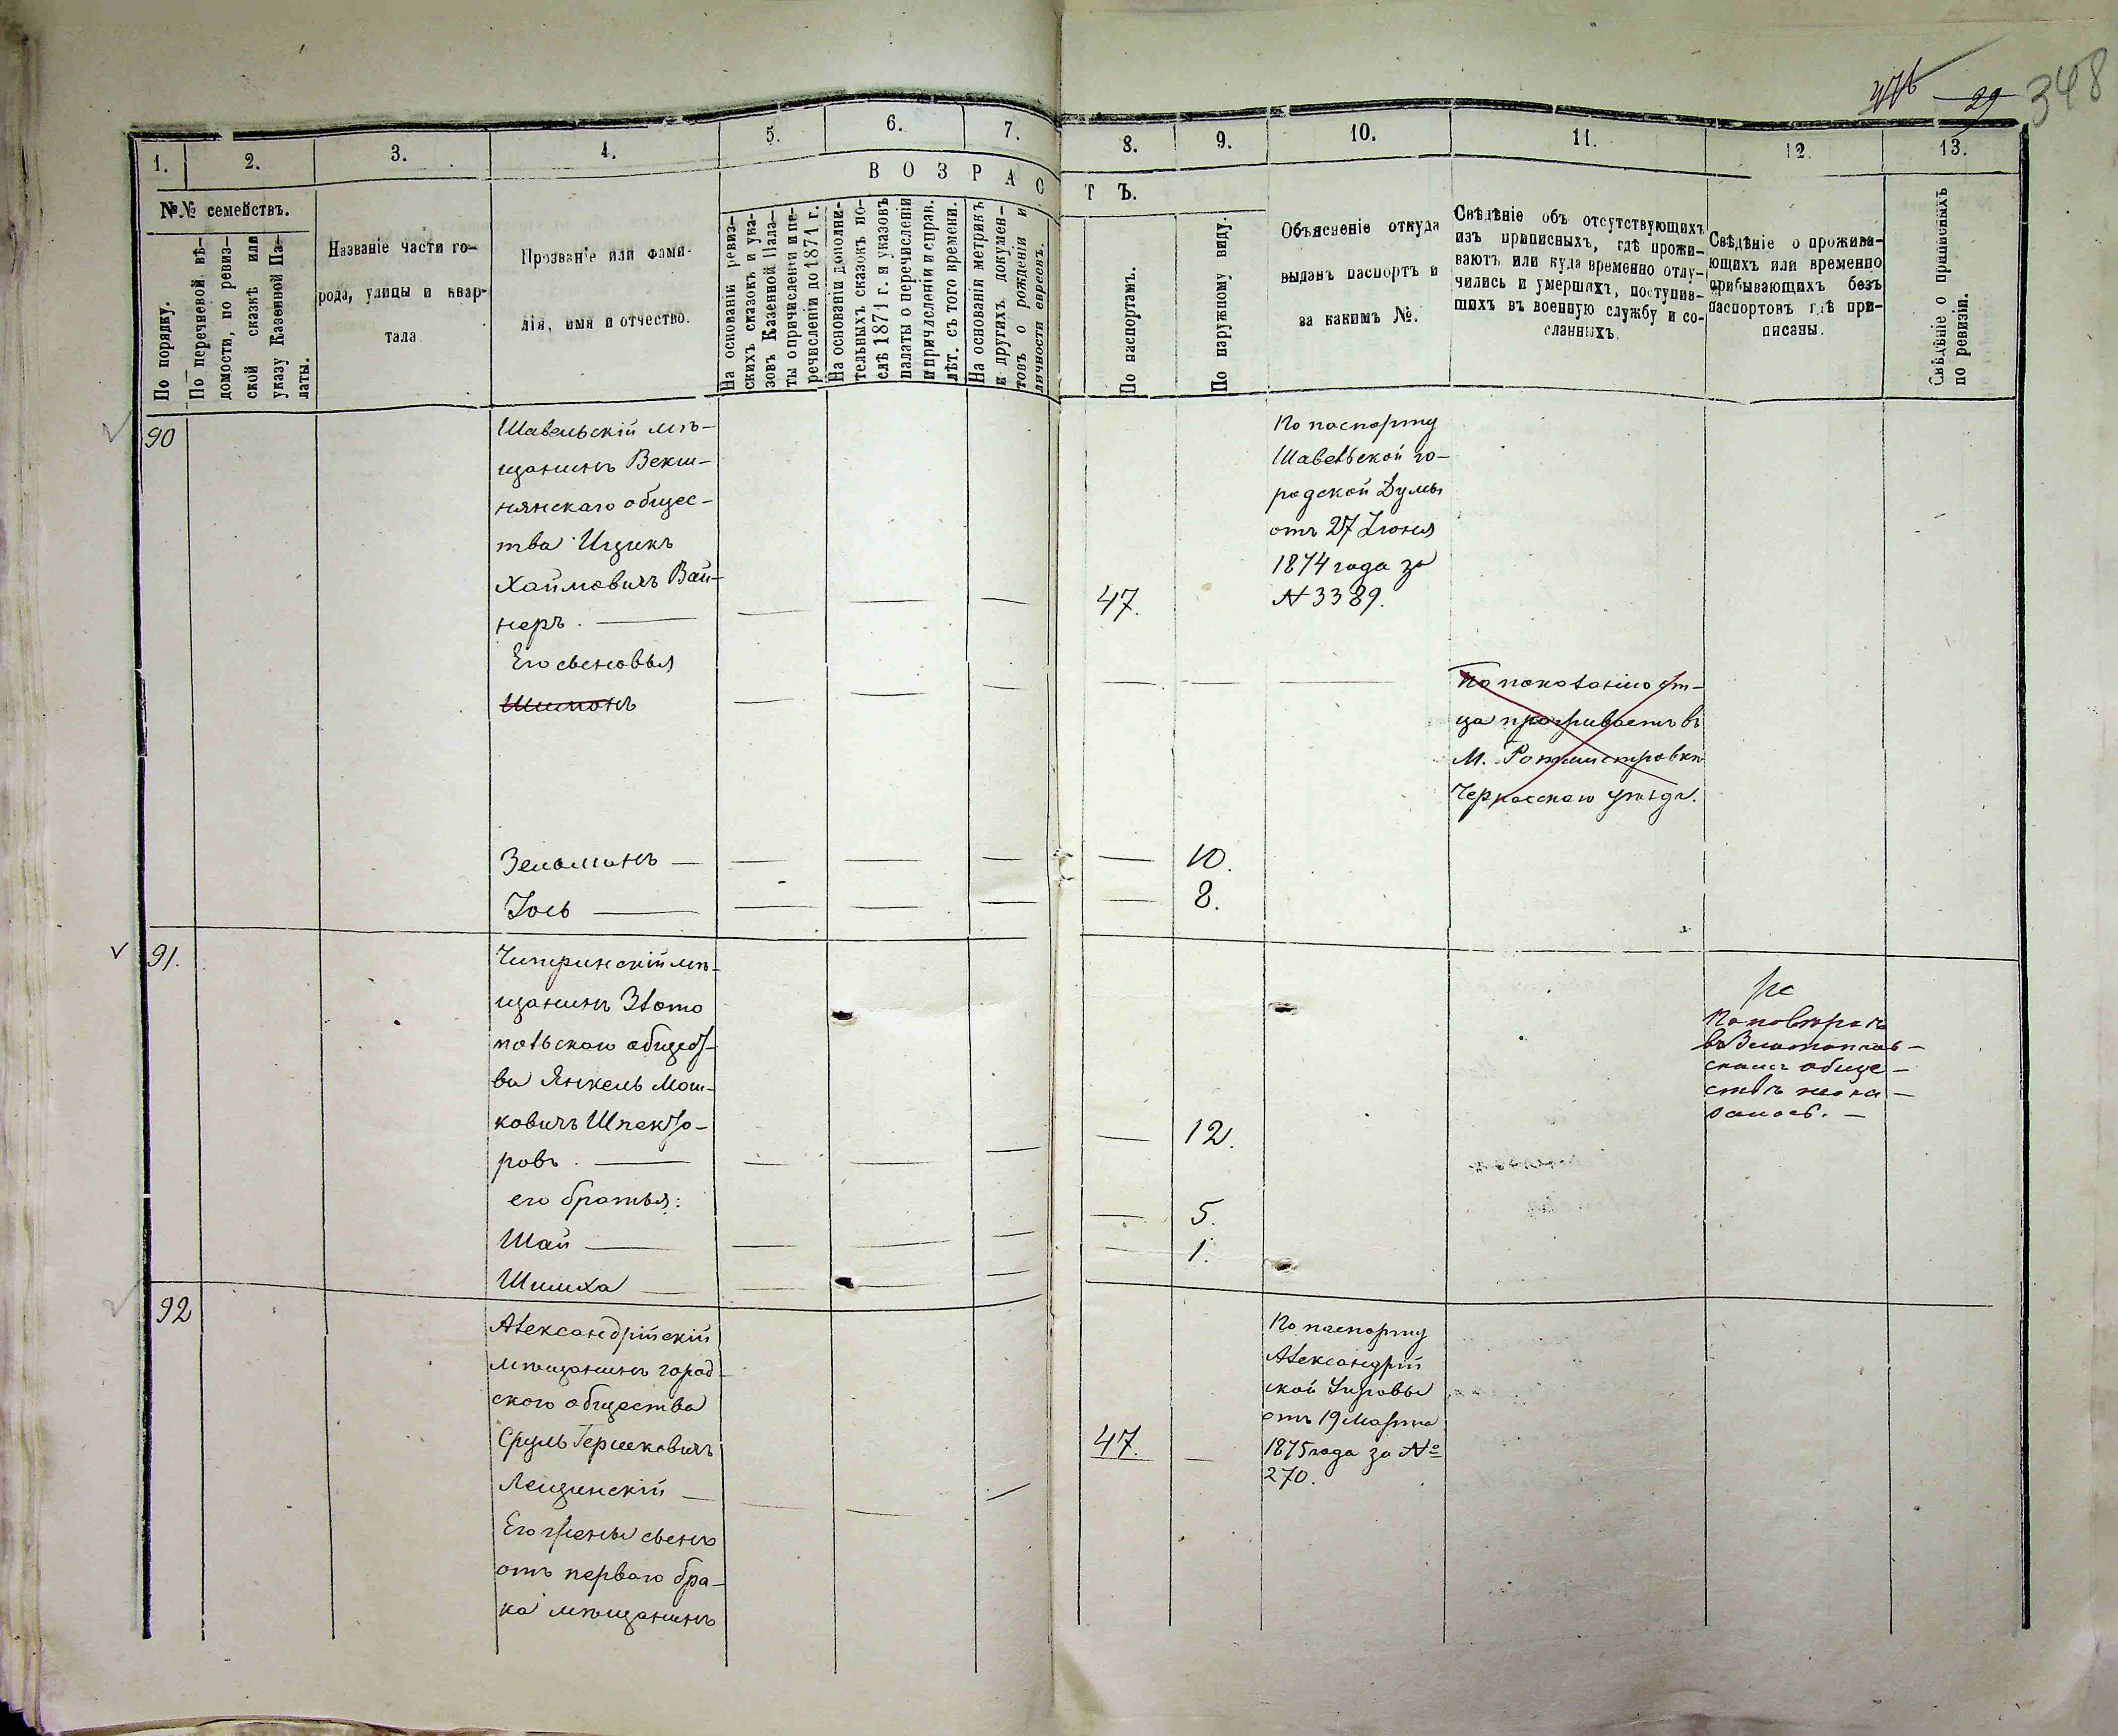 476 — 29 348
1. 2. 3. 4. 5. 6. 7. 8. 9. 10. 11. 12. 13.
В О З Р А С Т Ъ.
№№ семействъ.
По порядку.
По перечневой вѣ-
домости, по ревиз-
ской сказкѣ или
указу Казенной Па-
латы.
Названіе части го-
рода, улицы и квар-
тала
Прозваніе или фами-
лія, имя и отчество.
На основаніи ревиз-
скихъ сказокъ и ука-
зовъ Казенной Пала-
ты о причисленіи и пе-
речисленіи до 1871 г.
На основаніи дополни-
тельныхъ сказокъ по-
слѣ 1871 г. и указовъ
палаты о перечисленіи
и причисленіи и справ.
лѣт. съ того времени.
На основаніи метрикъ
и другихъ докумен-
товъ о рожденіи и
личности евреевъ.
По паспортамъ.
По наружному виду.
Объясненіе откуда
выданъ паспортъ и
за какимъ №.
Свѣдѣніе объ отсутствующихъ
изъ приписныхъ, гдѣ прожи-
ваютъ или куда временно отлу-
чились и умершихъ, поступив-
шихъ въ военную службу и со-
сланныхъ.
Свѣдѣніе о прожива-
ющихъ или временно
прибывающихъ безъ
паспортовъ гдѣ при-
писаны.
Свѣдѣніе о приписныхъ
по ревизіи.
90
Шавельскій мѣ-
щанинъ Векш-
нянскаго общес-
тва Ицикъ
Хаимовичъ Вай-
неръ.
47.
По паспорту
Шавельской го-
родской Думы
отъ 27 Іюня
1874 года за
№ 3389.
Его сыновья
Шимонъ
По показанію от-
ца проживаетъ въ
М. Ротмистровкѣ
Черкасскаго уѣзда.
Зельманъ — 10.
Іось — 8.
91.
Чигринскій мѣ-
щанинъ Злато
польскаго общест-
ва Янкель Мош-
ковичъ Шпекто-
ровъ.
12.
По повѣркѣ
въ Златополь-
скомъ обще-
ствѣ не ока-
залось. —
его братья:
Шай — 5.
Шимха — 1.
92
Александрійскій
мѣщанинъ город-
ского общества
Сруль Гершковичъ
Лещинскій —
47.
По паспорту
Александрій
ской Управы
отъ 19 Марта
1875 года за №
270.
Его жены сынъ
отъ перваго бра-
ка мѣщанинъ